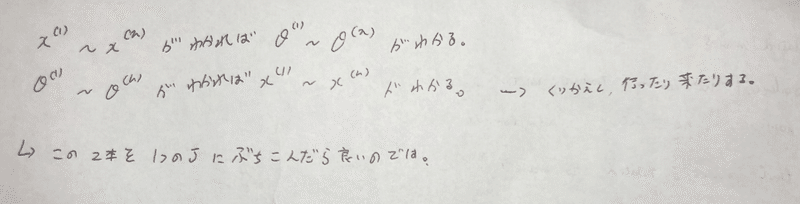 x⁽¹⁾ ~ x⁽ⁿ⁾ が わかれば θ⁽¹⁾ ~ θ⁽ⁿ⁾ がわかる。
θ⁽¹⁾ ~ θ⁽ⁿ⁾ が わかれば x⁽¹⁾ ~ x⁽ⁿ⁾ がわかる。 → くりかえし、行ったり来たりする。
↳ この2本を1つのJにぶちこんだら良いのでは。